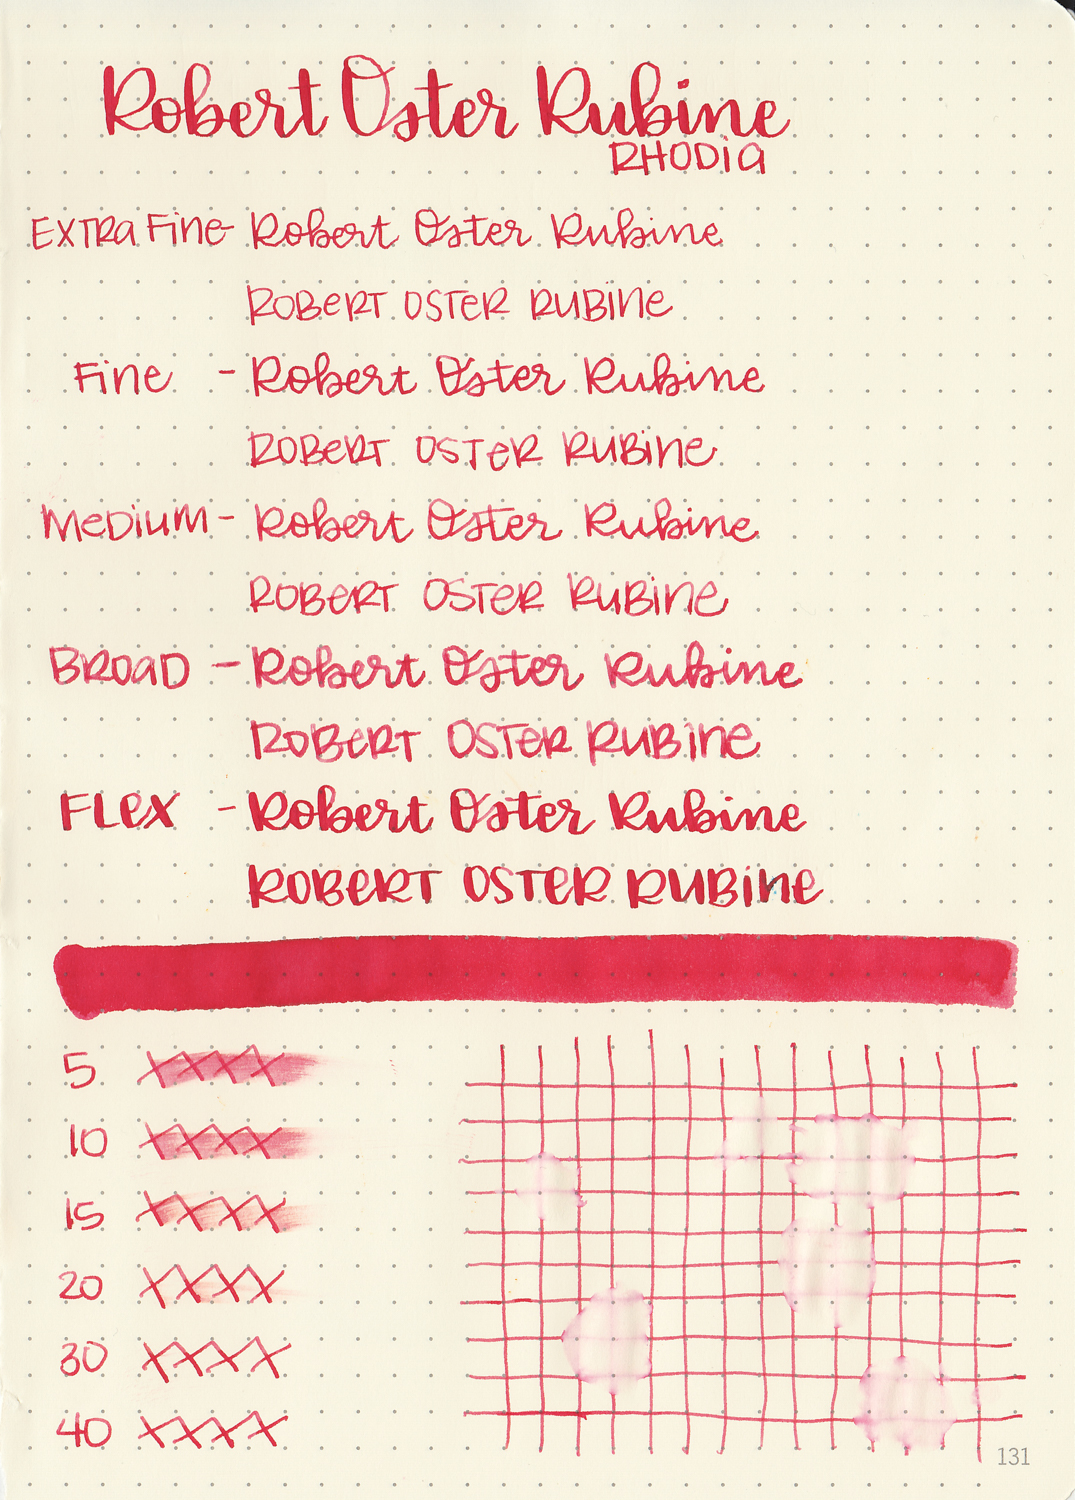 Robert Oster Rubine
RHODIA
EXTRA FINE - Robert Oster Rubine
ROBERT OSTER RUBINE
FINE - Robert Oster Rubine
ROBERT OSTER RUBINE
MEDIUM - Robert Oster Rubine
ROBERT OSTER RUBINE
BROAD - Robert Oster Rubine
ROBERT OSTER RUBINE
FLEX - Robert Oster Rubine
ROBERT OSTER RUBINE
5 XXXX
10 XXXX
15 XXXX
20 XXXX
30 XXXX
40 XXXX
131